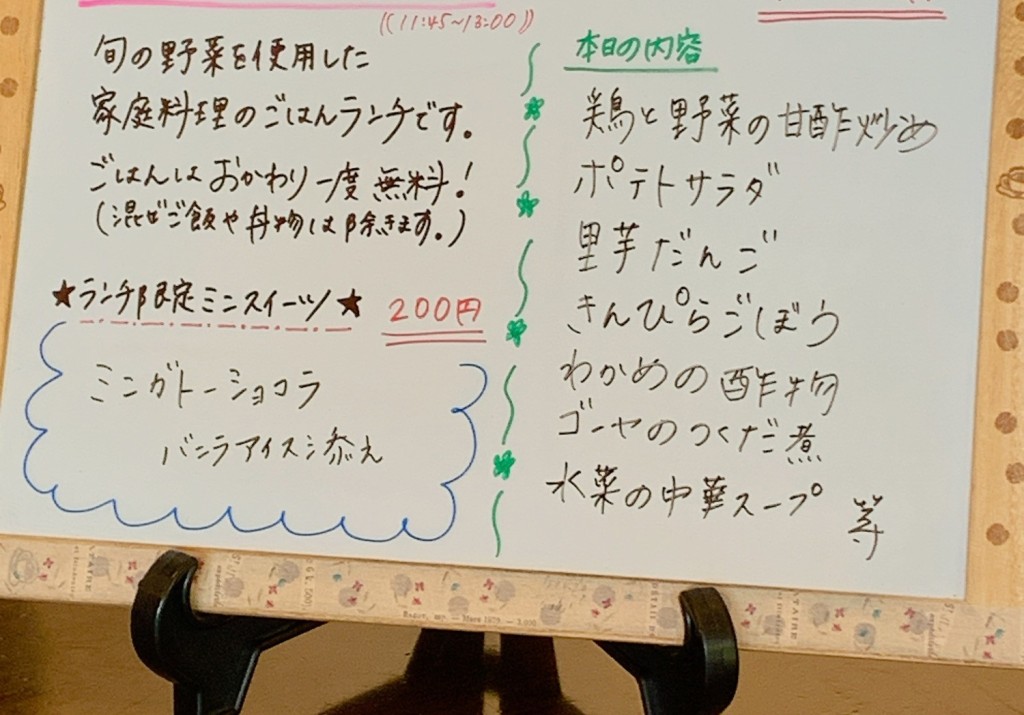 ((11:45~13:00))
旬の野菜を使用した
家庭料理のごはんランチです。
ごはんはおかわり一度無料!
(混ぜご飯や丼物は除きます。)
★ランチ限定ミニスイーツ★ 200円
ミニガトーショコラ
バニラアイス添え
本日の内容
鶏と野菜の甘酢炒め
ポテトサラダ
里芋だんご
きんぴらごぼう
わかめの酢物
ゴーヤのつくだ煮
水菜の中華スープ 等